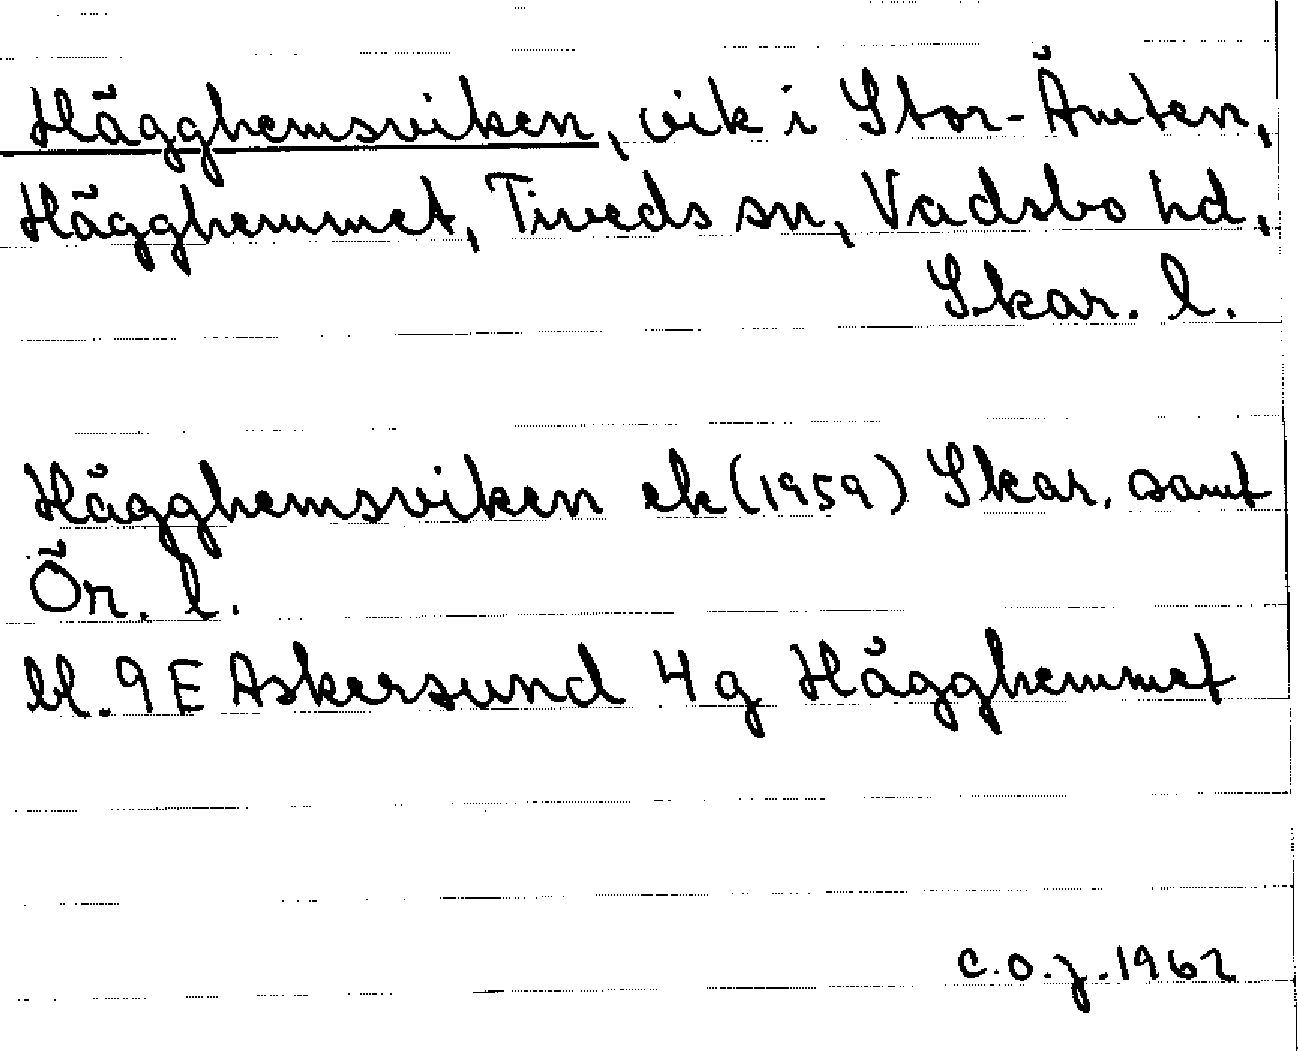 Hägghemsviken, vik i Stor-Ämten,
Hägghemmet, Tiveds sn, Vadsbo hd,
Skar. l.
Hägghemsviken ek (1959) Skar. samt
Ör. l.
Bl. 9E Askersund 4 g Hägghemmet
C.O.J. 1962